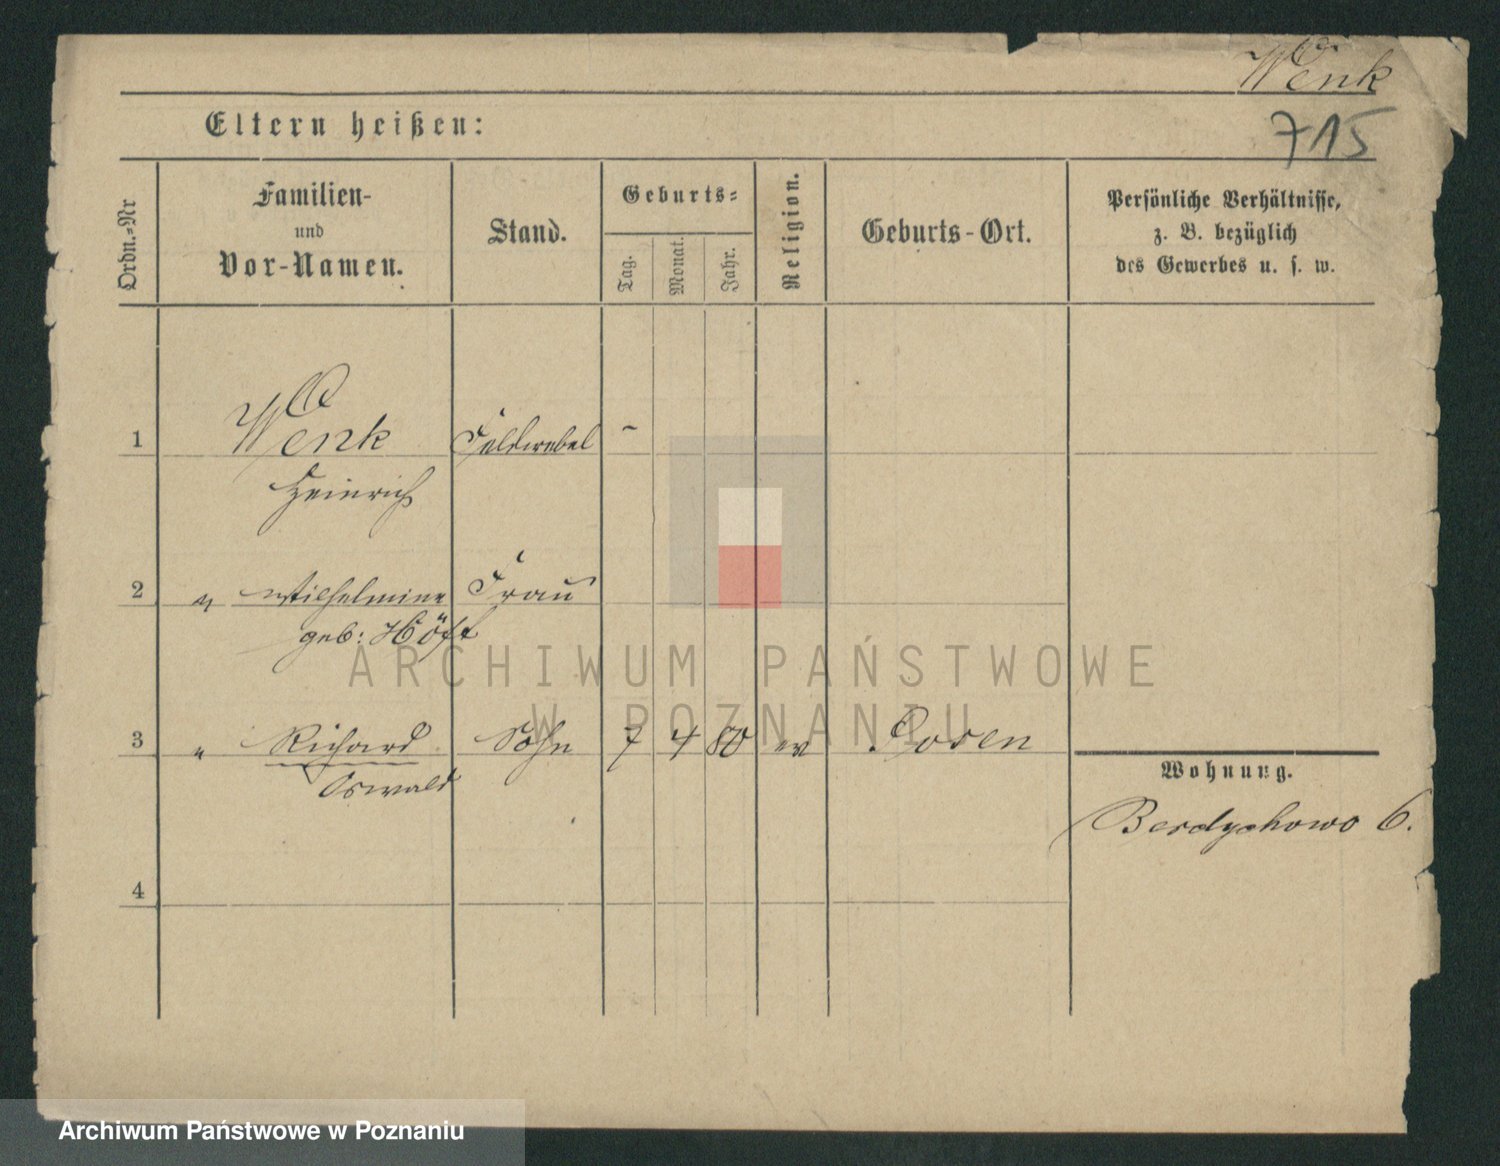 Wenk
715
Eltern heißen:
Ordn.-Nr
Familien-
und
Vor-Namen.
Stand.
Geburts-
Tag.
Monat.
Jahr.
Religion.
Geburts-Ort.
Persönliche Verhältnisse,
z. B. bezüglich
des Gewerbes u. s. w.
1 Wenk Feldwebel -
Heinrich
2 " Wilhelmine Frau
geb: Höft
3 " Richard Sohn 7 4 80 ev Posen
Oswald
Wohnung.
Berdychowo 6.
4
ARCHIWUM PAŃSTWOWE
W POZNANIU
Archiwum Państwowe w Poznaniu